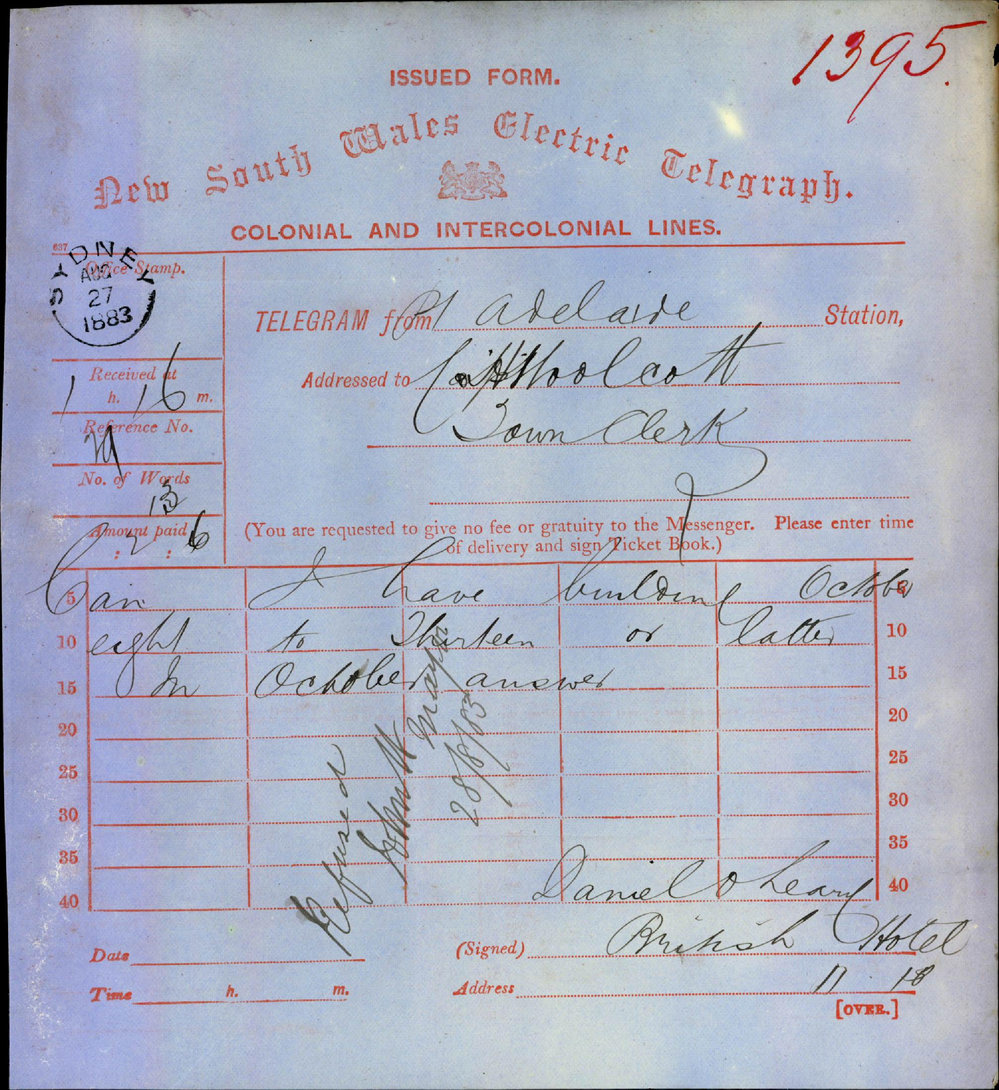 1395.
ISSUED FORM.
New South Wales Electric Telegraph.
COLONIAL AND INTERCOLONIAL LINES.
637
Office Stamp.
SYDNEY
AUG
27
1883
TELEGRAM from Pt Adelaide Station,
Received at
1 h. 16 m.
Addressed to C H Woolcott
Town Clerk
Reference No.
No. of Words
13
Amount paid
: 2 : 6
(You are requested to give no fee or gratuity to the Messenger. Please enter time
of delivery and sign Ticket Book.)
5 Can I have building October 5
10 eight to Thirteen or latter 10
15 In October answer 15
20 20
25 25
30 30
35 35
40 40
Refused
Mayor
28/8/83
Daniel O Leary
Date (Signed) British Hotel
Time h. m. Address 11 18
[OVER.]